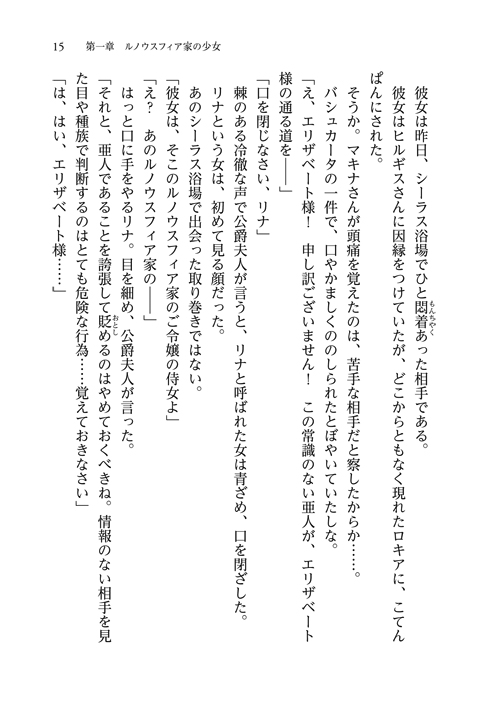 15　第一章　ルノウスフィア家の少女
彼女は昨日、シーラス浴場でひと悶着あった相手である。
もんちゃく
彼女はヒルギスさんに因縁をつけていたが、どこからともなく現れたロキアに、こてん
ぱんにされた。
そうか。マキナさんが頭痛を覚えたのは、苦手な相手だと察したからか……。
バシュカータの一件で、口やかましくののしられたとぼやいていたしな。
「え、エリザベート様！　申し訳ございません！　この常識のない亜人が、エリザベート
様の通る道を――」
「口を閉じなさい、リナ」
棘のある冷徹な声で公爵夫人が言うと、リナと呼ばれた女は青ざめ、口を閉ざした。
リナという女は、初めて見る顔だった。
あのシーラス浴場で出会った取り巻きではない。
「彼女は、そこのルノウスフィア家のご令嬢の侍女よ」
「え？　あのルノウスフィア家の――」
はっと口に手をやるリナ。目を細め、公爵夫人が言った。
「それと、亜人であることを誇張して貶めるのはやめておくべきね。情報のない相手を見
おとし
た目や種族で判断するのはとても危険な行為……覚えておきなさい」
「は、はい、エリザベート様……」